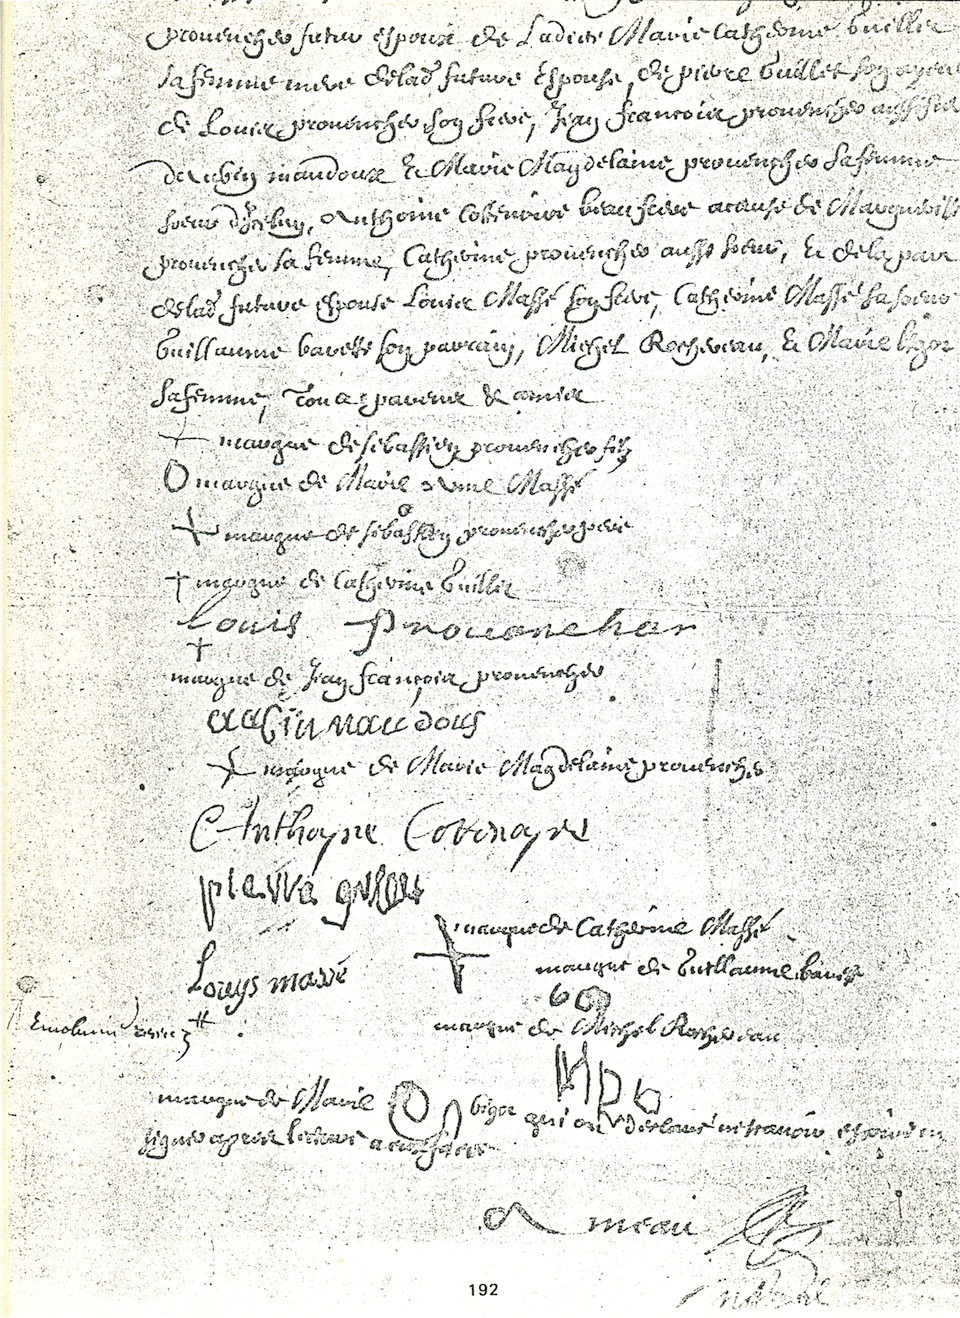 provencher futur espoux de Ladicte Marie Catherine Guillet
sa femme mere de lad. future Espouse, de pierre Guillet son ayeul
de Louis provencher son frere, Jean francois provencher aussi frere
d'aubin maudoux Et Marie Magdelaine provencher sa femme
soeur d'Iceluy, Anthoine Cottenoire beau frere a cause de Marguerite
provencher sa femme, Catherine provencher aussi soeur, Et de la part
de lad. future espouse Louis Massé son frere, Catherine Massé sa soeur
Guillaume barette son parrain, Michel Rochereau, Et Marie bigot
sa femme, Tous parens & amis
+ marque de sebastien provencher filz
O marque de Marie Anne Massé
+ marque de sebastien provencher pere
+ marque de Catherine Guillet
Louis Provencher
+
marque de Jean françois provencher
aubin maudous
+ marque de Marie Magdelaine provencher
Anthoyne Cottenoyre
pierre
marque de Catherine Massé
Louys massé
marque de Guillaume barette
marque de Michel Rochereau
marque de Marie bigot qui ont declaré ne scavoir escrire ny
signer apres lecture
Ameau
192